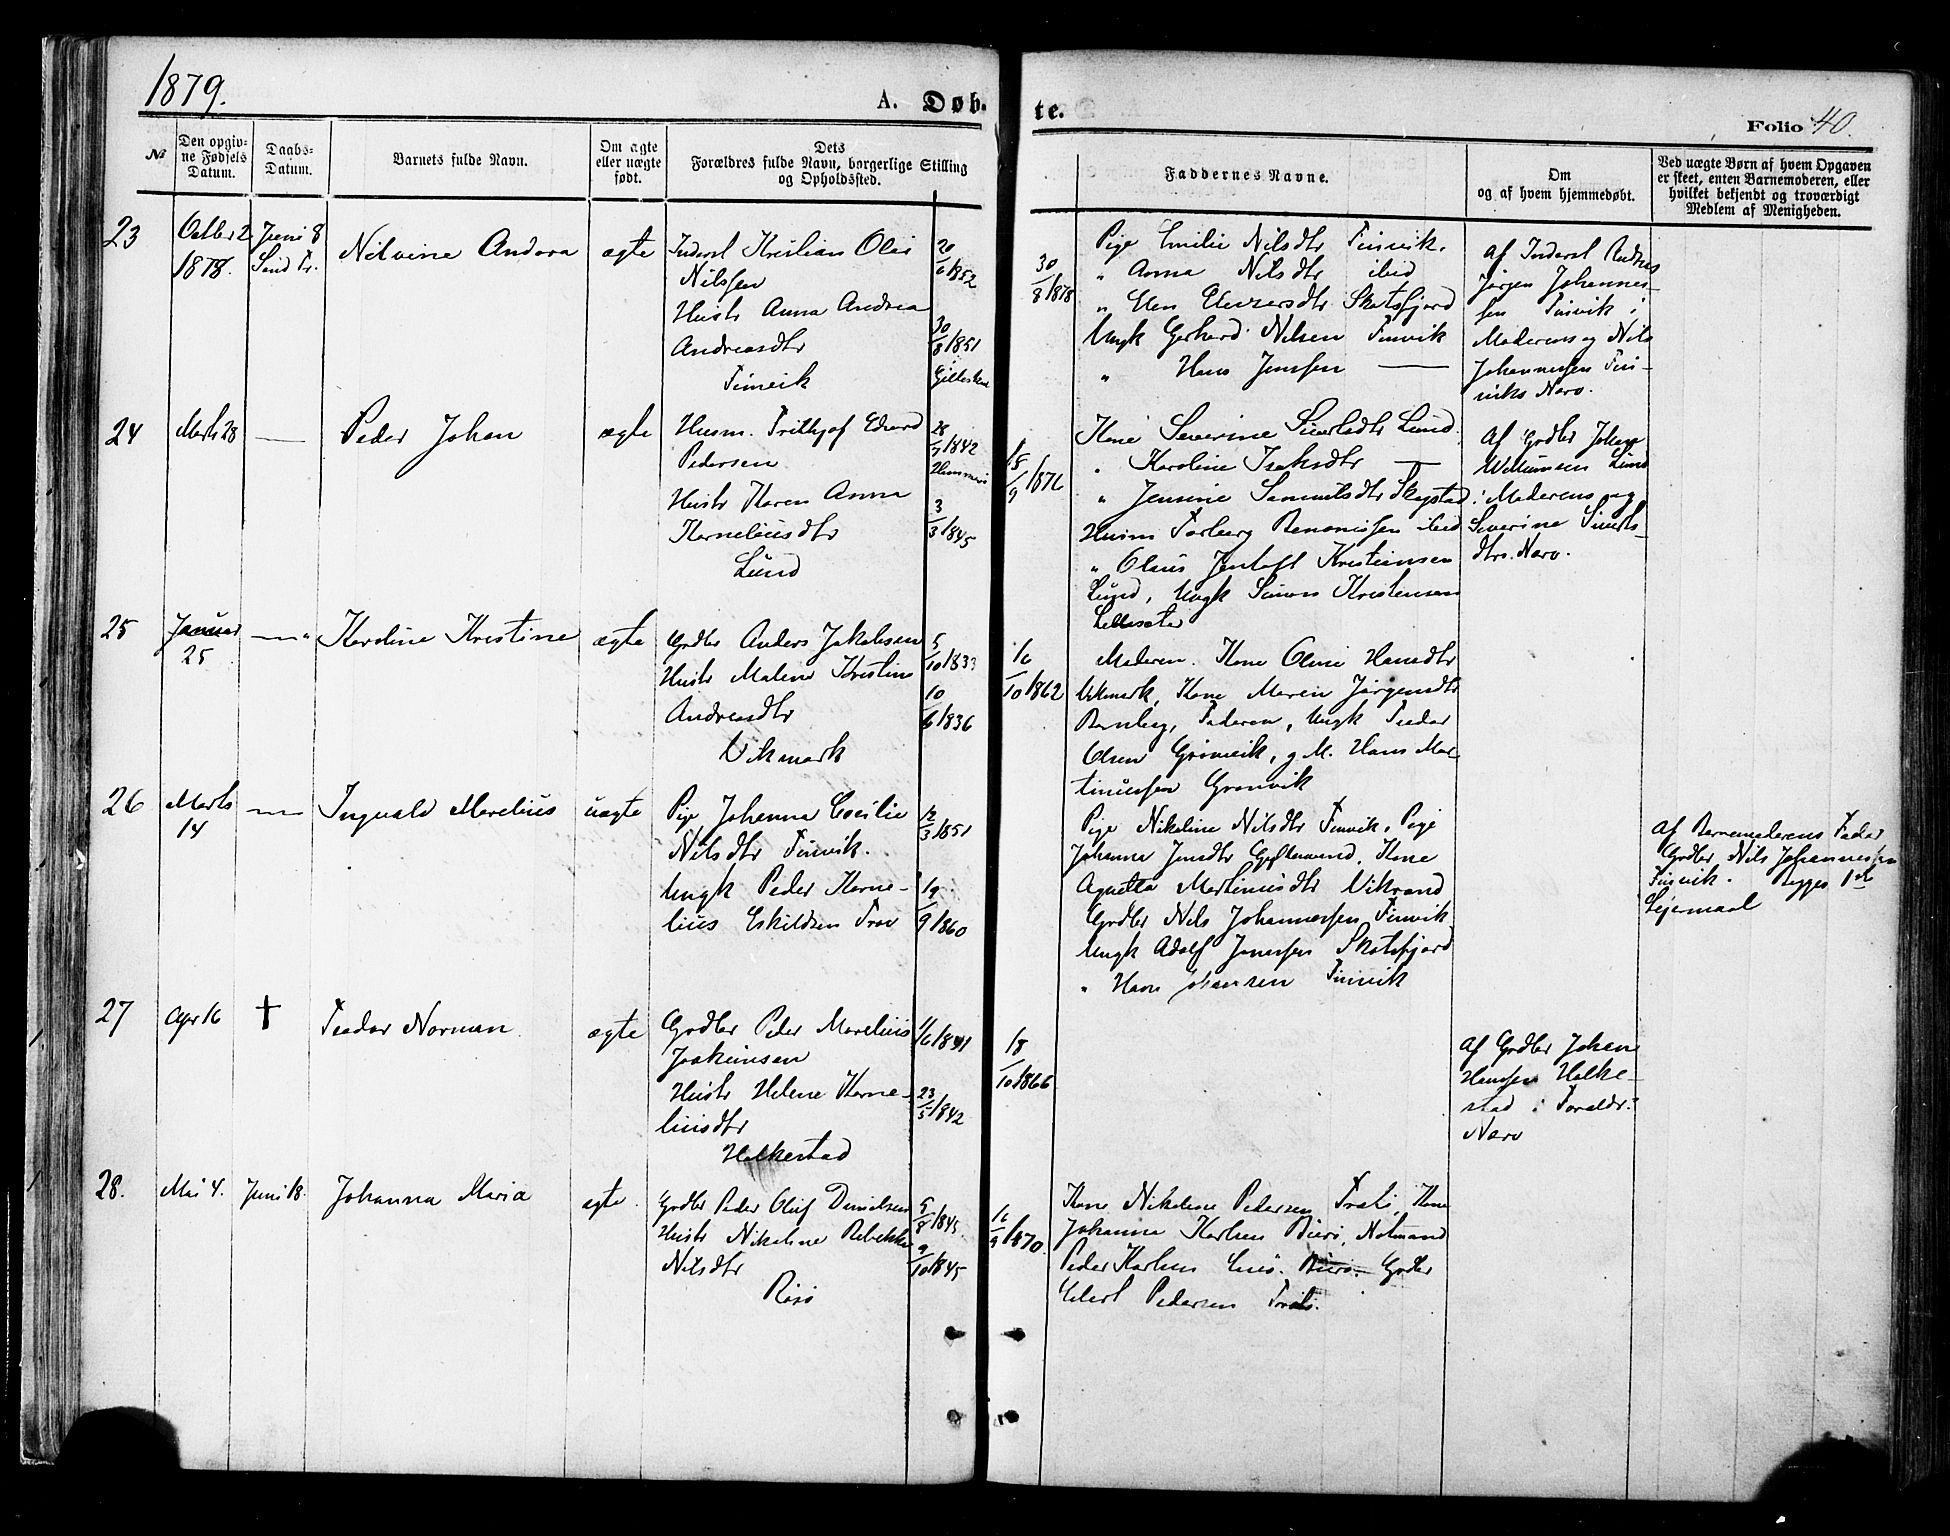 1879.
A. Døb.
te.
Folio 40.
№
Den opgiv-
ne Fødsels
Datum.
Daabs-
Datum.
Barnets fulde Navn.
Om ægte
eller uægte
født.
Dets
Forældres fulde Navn, borgerlige Stilling
og Opholdssted.
Faddernes Navne.
Om
og af hvem hjemmedøbt.
Ved uægte Børn af hvem Opgaven
er skeet, enten Barnemoderen, eller
hvilket bekjendt og troværdigt
Medlem af Menigheden.
23
Octber 2
1878.
Juni 8
ægte
Inderst Kristian Olai
Nilssen
Hustr Anna Andrea
Andreasdtr
Finvik
20/6 1852
30/8 1851
30/8 1878
Pige Emilie Nilsdtr Finvik.
" Anna Nilsdtr ibid
" Elen Skotsfjord
Ungk Gerhard Nilsen Finvik
" Hans Jenssen —
Af Inderst
Jørgen Johannes-
sen Finvik i
Moderens og Nils
Johannessen Fin-
viks Nærv.
24
Marts 28
—
Peder Johan
ægte
Husm. Frithjof Edvard
Pedersen
Hustr Karen Anna
Korneliusdtr
Lund
1842
3/3 1845
18/9 1876
Kone Severine Lund
" Karoline Isaksdtr —
" Jensine Samuelsdtr Skogstad
Husm Torberg ibid
" Olaus Jentoft Kristiansen
Lund, Ungk Simon Kristensen
Af Grdbr Johan
Willumsen Lund
i Moderens og
Severine
dtrs. Nærv.
25
Januar
25
— "
Karoline Kristine
ægte
Grdbr Anders Jakobsen
Hustr Malene Kristine
Andreasdtr
Vikmark
5/10 1833
10/6 1836
16/10 1862
Moderen. Kone Oline Hansdtr
Vikmark, Kone Maren Jørgensdtr
Faderen, Ungk Teodor
Olsen g. M. Hans Mar-
tinussen Grønvik
26
Marts
14
—
Ingvald Marelius
uægte
Pige Johanna Cecilie
Nilsdtr Finvik.
Ungk Peder Korne-
lius Eskildsen
12/3 1851
19/9 1860
Pige Nikoline Nilsdtr Finvik, Pige
Johanna Jensdtr Kone
Agnetta Martinusdtr Vikrand
Grdbr Nils Johannessen Finvik
Ungk Adolf Jenssen Skotsfjord
" Hans Johansen Finvik
Af Barnemoderens Fader
Grdbr. Nils Johannessen
Finvik. Begges 1ste
Leiermaal
27
Apr 16
†
Teodor Norman
ægte
Grdbr Peder Marelius
Joakimsen
Hustr Helene Korne-
liusdtr
Holkestad
1/6 1841
23/5 1842
18/10 1866
Af Grdbr Johan
Hansen Holke-
stad i Foreldr.
Nærv
28.
Mai 4.
Juni 18.
Johanna Maria
ægte
Grdbr Peder Oluf Danielsen
Hustr Nikoline Rebekka
Nilsdtr
5/8 1845.
9/10 1845
16/9 1870
Kone Nikoline Pedersen Kone
Johanna Karlsen Notmand
Peder Karlsen Grdbr
Edert Pedersen